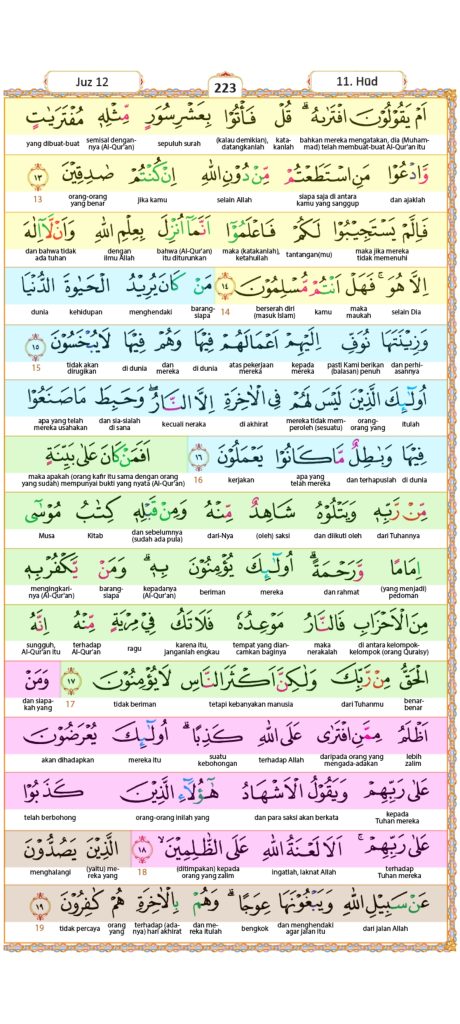 Juz 12
223
11. Hūd
اَمْ يَقُوْلُوْنَ افْتَرٰىهُ ۗ قُلْ فَأْتُوْا بِعَشْرِ سُوَرٍ مِّثْلِهٖ مُفْتَرَيٰتٍ
bahkan mereka mengatakan, dia (Muhammad) telah membuat-buat Al-Qur'an itu kata-kanlah (kalau demikian), datangkanlah sepuluh surah semisal dengan-nya (Al-Qur'an) yang dibuat-buat
وَّادْعُوْا مَنِ اسْتَطَعْتُمْ مِّنْ دُوْنِ اللّٰهِ اِنْ كُنْتُمْ صٰدِقِيْنَ ١٣
dan ajaklah siapa saja di antara kamu yang sanggup selain Allah jika kamu orang-orang yang benar 13
فَاِلَّمْ يَسْتَجِيْبُوْا لَكُمْ فَاعْلَمُوْٓا اَنَّمَآ اُنْزِلَ بِعِلْمِ اللّٰهِ وَاَنْ لَّآ اِلٰهَ
maka jika mereka tidak memenuhi tantangan(mu) maka (katakanlah), ketahuilah bahwa (Al-Qur'an) itu diturunkan dengan ilmu Allah dan bahwa tidak ada tuhan
اِلَّا هُوَ ۚ فَهَلْ اَنْتُمْ مُّسْلِمُوْنَ ١٤ مَنْ كَانَ يُرِيْدُ الْحَيٰوةَ الدُّنْيَا
selain Dia maka maukah kamu berserah diri (masuk Islam) 14 barang-siapa menghendaki kehidupan dunia
وَزِيْنَتَهَا نُوَفِّ اِلَيْهِمْ اَعْمَالَهُمْ فِيْهَا وَهُمْ فِيْهَا لَا يُبْخَسُوْنَ ١٥
dan perhi-asannya pasti Kami berikan (balasan) penuh kepada mereka atas pekerjaan mereka di dunia dan mereka di dunia tidak akan dirugikan 15
اُولٰۤىِٕكَ الَّذِيْنَ لَيْسَ لَهُمْ فِى الْاٰخِرَةِ اِلَّا النَّارُ ۖ وَحَبِطَ مَا صَنَعُوْا
itulah orang-orang yang mereka tidak mem-peroleh (sesuatu) di akhirat kecuali neraka dan sia-sialah di sana apa yang telah mereka usahakan
فِيْهَا وَبٰطِلٌ مَّا كَانُوْا يَعْمَلُوْنَ ١٦ اَفَمَنْ كَانَ عَلٰى بَيِّنَةٍ
di dunia dan terhapuslah apa yang telah mereka kerjakan 16 maka apakah (orang kafir itu sama dengan orang yang sudah) mempunyai bukti yang nyata (Al-Qur'an)
مِّنْ رَّبِّهٖ وَيَتْلُوْهُ شَاهِدٌ مِّنْهُ وَمِنْ قَبْلِهٖ كِتٰبُ مُوْسٰٓى
dari Tuhannya dan diikuti oleh (oleh) saksi dari-Nya dan sebelumnya (sudah ada pula) Kitab Musa
اِمَامًا وَّرَحْمَةً ۗ اُولٰۤىِٕكَ يُؤْمِنُوْنَ بِهٖ ۗ وَمَنْ يَّكْفُرْ بِهٖ
(yang menjadi) pedoman dan rahmat mereka beriman kepadanya (Al-Qur'an) barang-siapa mengingkari-nya (Al-Qur'an)
مِنَ الْاَحْزَابِ فَالنَّارُ مَوْعِدُهٗ فَلَا تَكُ فِيْ مِرْيَةٍ مِّنْهُ اِنَّهُ
di antara kelompok-kelompok (orang Quraisy) maka nerakalah tempat yang dian-camkan baginya karena itu, janganlah engkau ragu terhadap Al-Qur'an sungguh, Al-Qur'an itu
الْحَقُّ مِنْ رَّبِّكَ وَلٰكِنَّ اَكْثَرَ النَّاسِ لَا يُؤْمِنُوْنَ ١٧ وَمَنْ
benar-benar dari Tuhanmu tetapi kebanyakan manusia tidak beriman 17 dan siapa-kah yang
اَظْلَمُ مِمَّنِ افْتَرٰى عَلَى اللّٰهِ كَذِبًا ۗ اُولٰۤىِٕكَ يُعْرَضُوْنَ
lebih zalim daripada orang yang mengada-adakan terhadap Allah suatu kebohongan mereka itu akan dihadapkan
عَلٰى رَبِّهِمْ وَيَقُوْلُ الْاَشْهَادُ هٰٓؤُلَاۤءِ الَّذِيْنَ كَذَبُوْا
kepada Tuhan mereka dan para saksi akan berkata orang-orang inilah yang telah berbohong
عَلٰى رَبِّهِمْ ۚ اَلَا لَعْنَةُ اللّٰهِ عَلَى الظّٰلِمِيْنَ ۙ ١٨ الَّذِيْنَ يَصُدُّوْنَ
terhadap Tuhan mereka ingatlah, laknat Allah (ditimpakan) kepada orang yang zalim 18 (yaitu) me-reka yang menghalangi
عَنْ سَبِيْلِ اللّٰهِ وَيَبْغُوْنَهَا عِوَجًا ۗ وَهُمْ بِالْاٰخِرَةِ هُمْ كٰفِرُوْنَ ١٩
dari jalan Allah dan menghendaki agar jalan itu bengkok dan me-reka itulah terhadap (ada-nya) hari akhirat orang yang tidak percaya 19